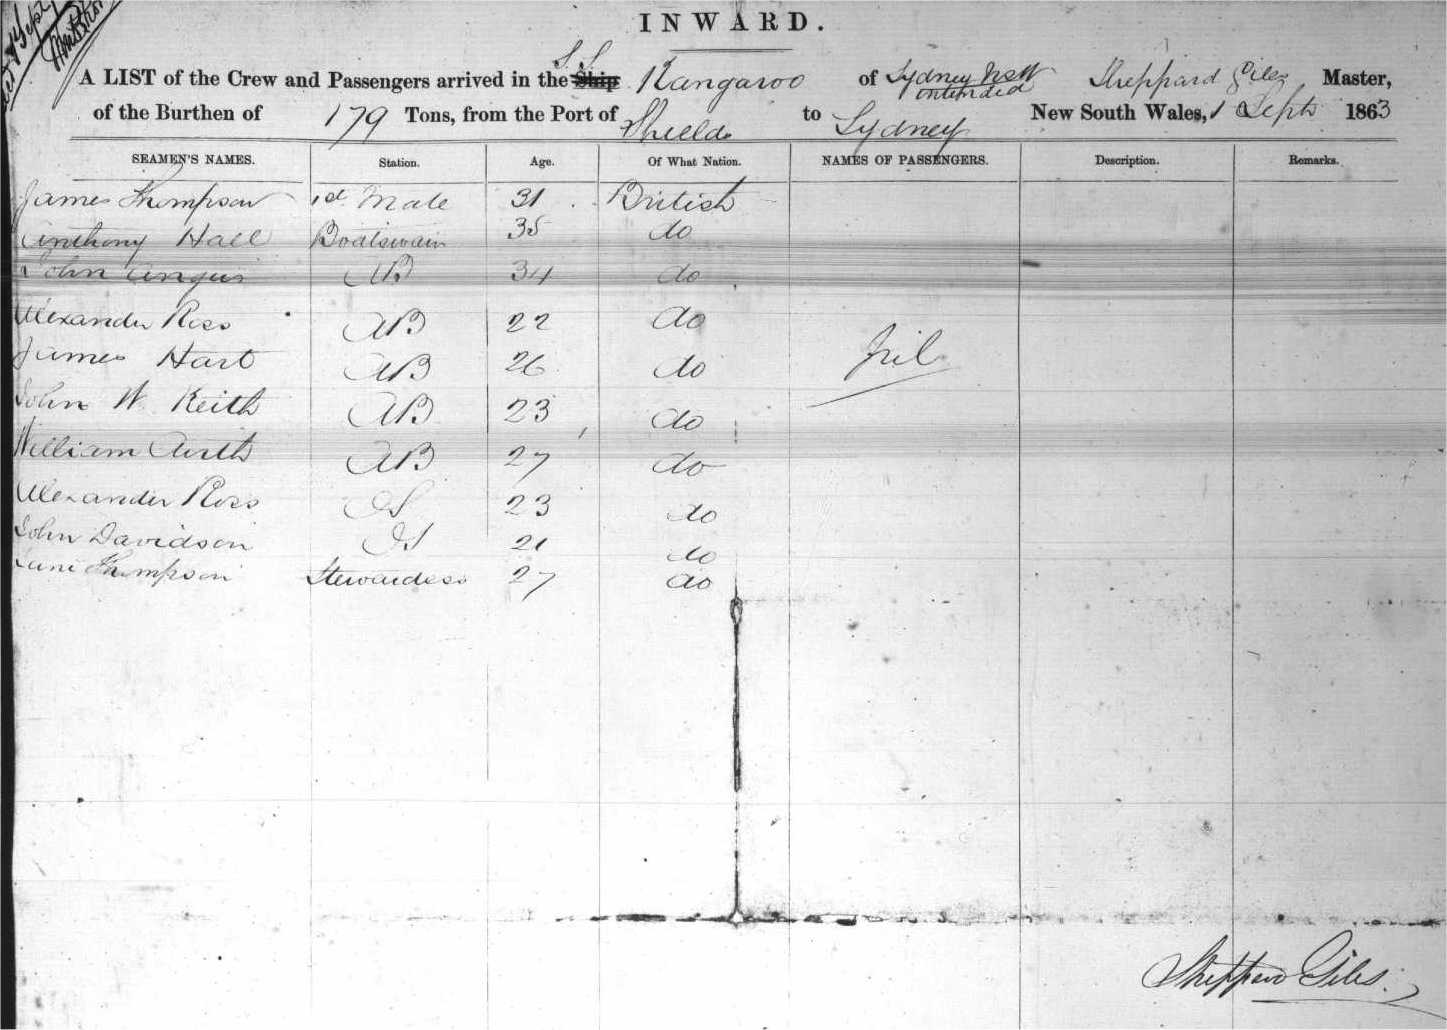 INWARD.
A LIST of the Crew and Passengers arrived in the Ship S.S. Kangaroo of Sydney NSW intended Sheppard Giles Master,
of the Burthen of 179 Tons, from the Port of Shields to Sydney New South Wales, 1 Septr 1863
SEAMEN'S NAMES. Station. Age. Of What Nation. NAMES OF PASSENGERS. Description. Remarks.
James Thompson 1st Mate 31 British
Anthony Hall Boatswain 35 do
John Angus AB 34 do
Alexander Ross AB 22 do
James Hart AB 26 do Nil
John W. Keith AB 23 do
William Airth AB 27 do
Alexander Ross OS 23 do
John Davidson OS 21 do
Jane Thompson Stewardess 27 do
Sheppard Giles